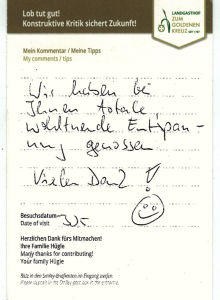 Lob tut gut!
Konstruktive Kritik sichert Zukunft!
LANDGASTHOF
ZUM
GOLDENEN
KREUZ
Mein Kommentar / Meine Tipps
My comments / tips
Wir haben bei
Ihnen totale,
wohltuende Entspan-
nung genossen
Vielen Dank!
Besuchsdatum
Date of visit
Herzlichen Dank fürs Mitmachen!
Ihre Familie Hügle
Many thanks for contributing!
Your family Hügle
Bitte in den Smiley-Briefkasten im Eingang werfen.